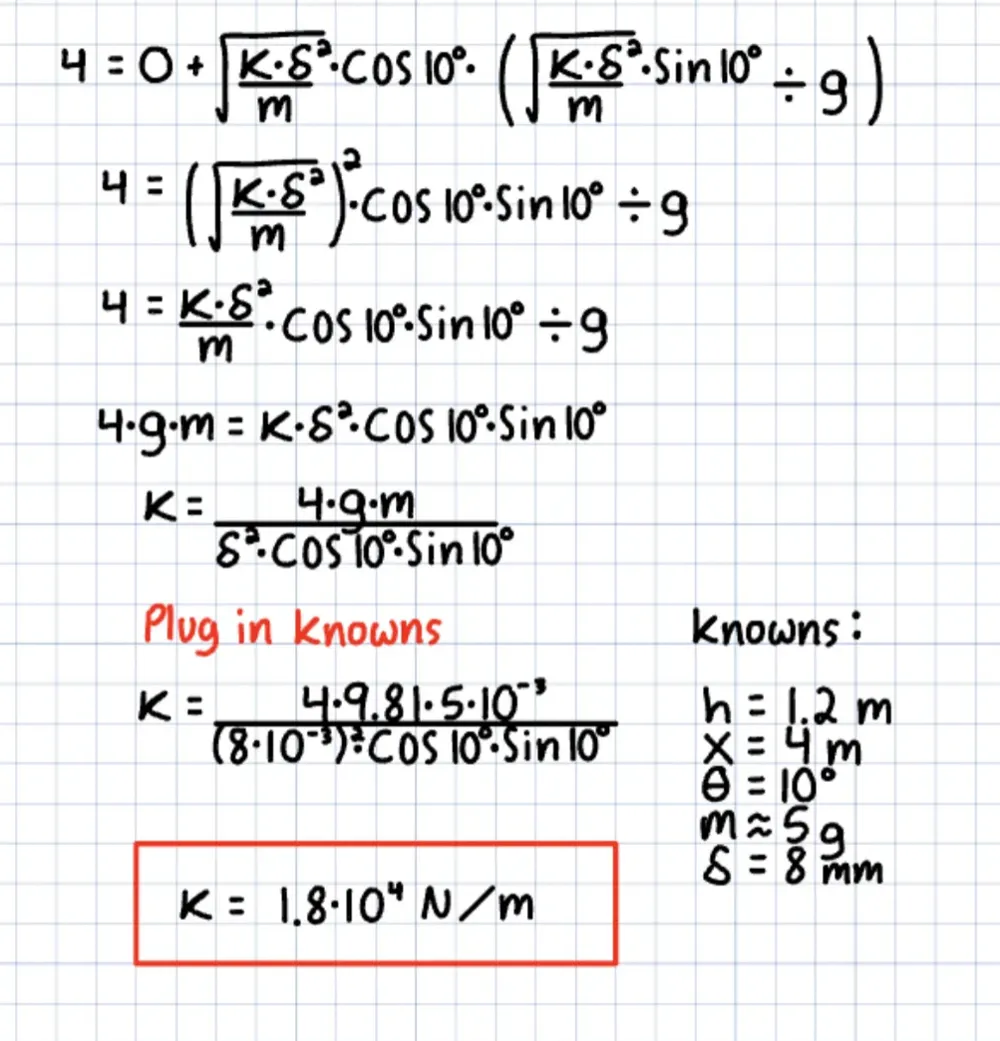 4 = 0 + √(K·δ²/m)·COS 10°·(√(K·δ²/m)·Sin 10° ÷ g)
4 = (√(K·δ²/m))²·COS 10°·Sin 10° ÷ g
4 = K·δ²/m·COS 10°·Sin 10° ÷ g
4·g·m = K·δ²·COS 10°·Sin 10°
K = 4·g·m / δ²·COS 10°·Sin 10°
Plug in knowns
K = 4·9.81·5·10⁻³ / (8·10⁻³)²·COS 10°·Sin 10°
K = 1.8·10⁴ N/m
knowns:
h = 1.2 m
x = 4 m
θ = 10°
m ≈ 5 g
δ = 8 mm